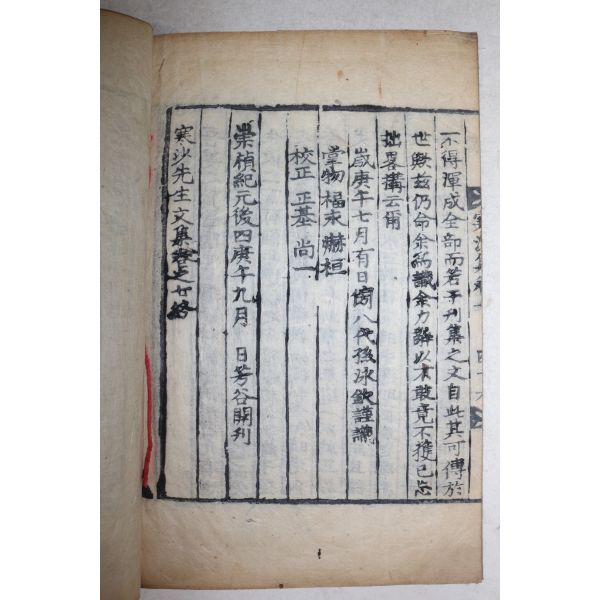 不得渾成全部而若干刊集之文自此其可傳於
世歟玆仍命余爲識余力辭以不敢竟不獲已忘
拙畧搆云爾
歲庚午七月有日 八代孫泳欽謹識
掌物 福永 爀桓
校正 正基 尚一
崇禎紀元後四庚午九月 日芳谷開刊
寒沙先生文集卷之七終